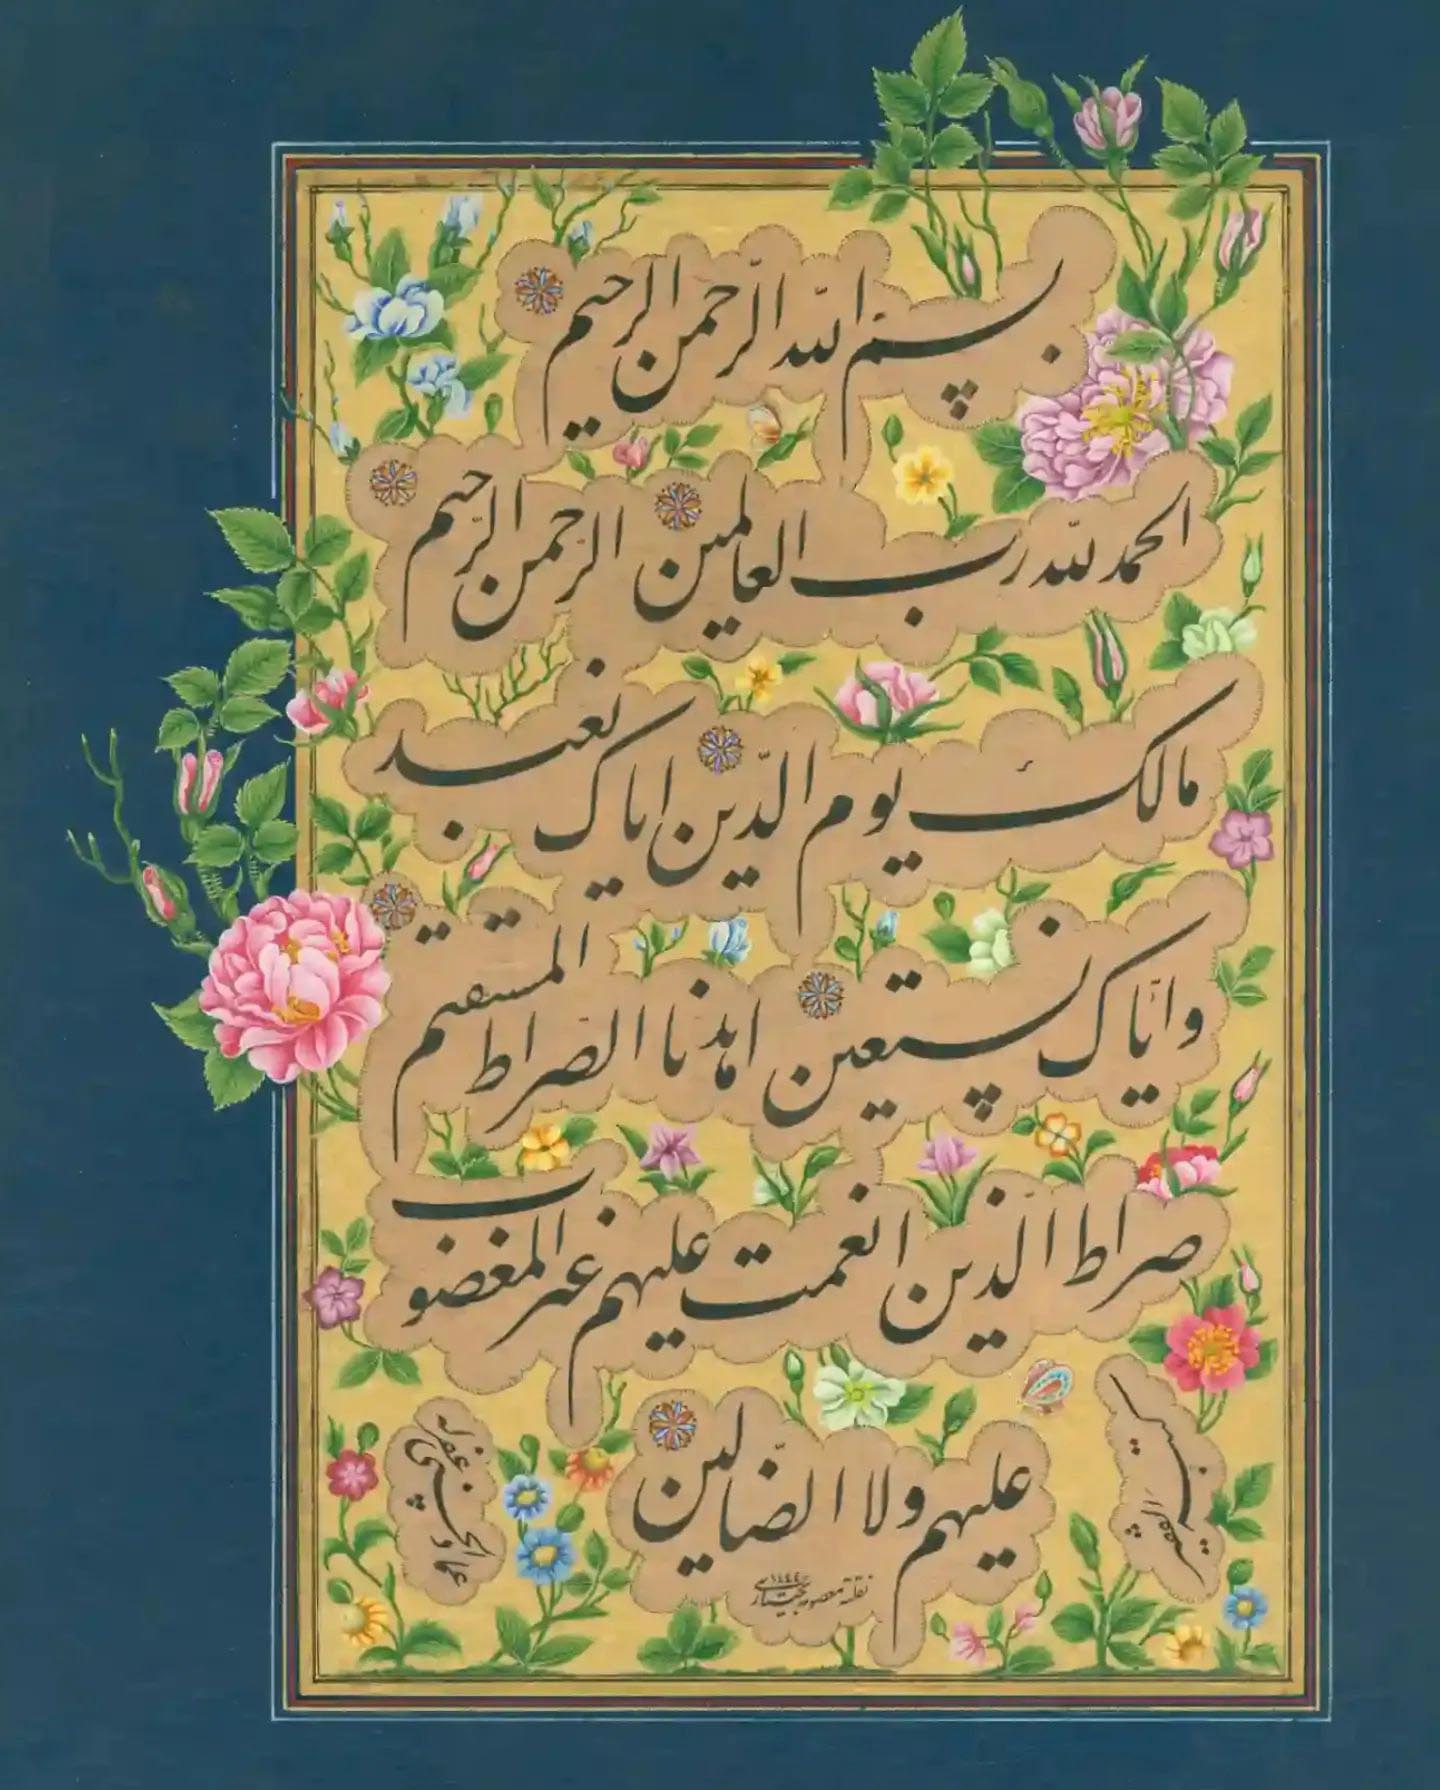 بسم الله الرّحمن الرحیم
الحمد لله رب العالمین الرّحمن الرّحیم
مالک یوم الدّین ایاک نعبد
وایّاک نستعین اهدنا الصّراط المستقیم
صراط الّذین انعمت علیهم غیر المغضوب
علیهم ولا الضّالین
نقلهٔ معصومه بختیاری ۱۴۴۴
عماد الحسنی غفر له